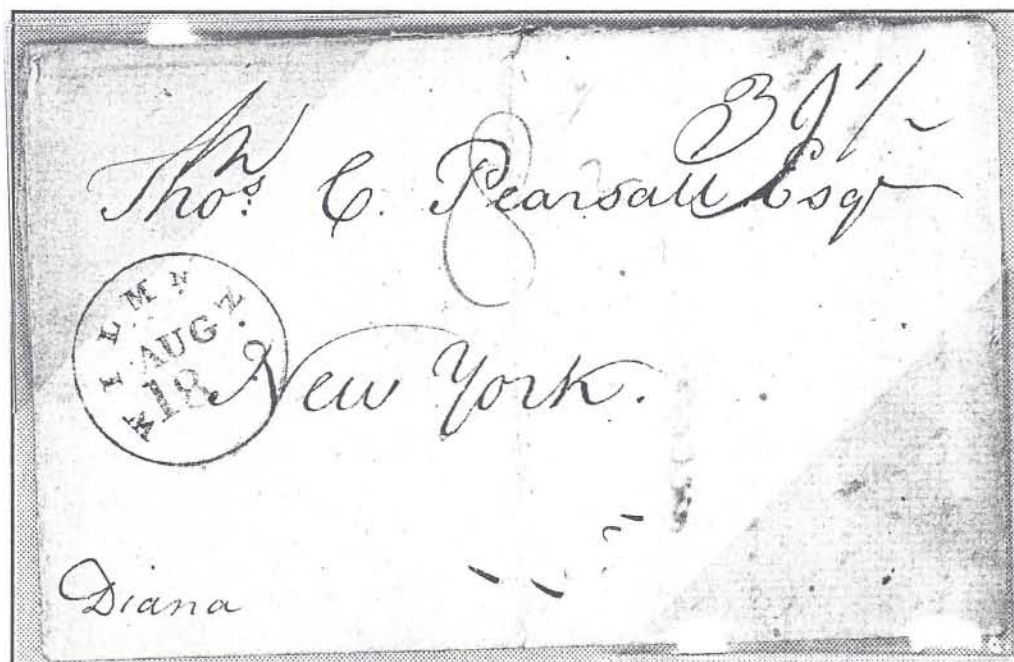 Thos. C. Pearsall Esqr
8
WILMN
N.C.
AUG
18
New York.
Diana